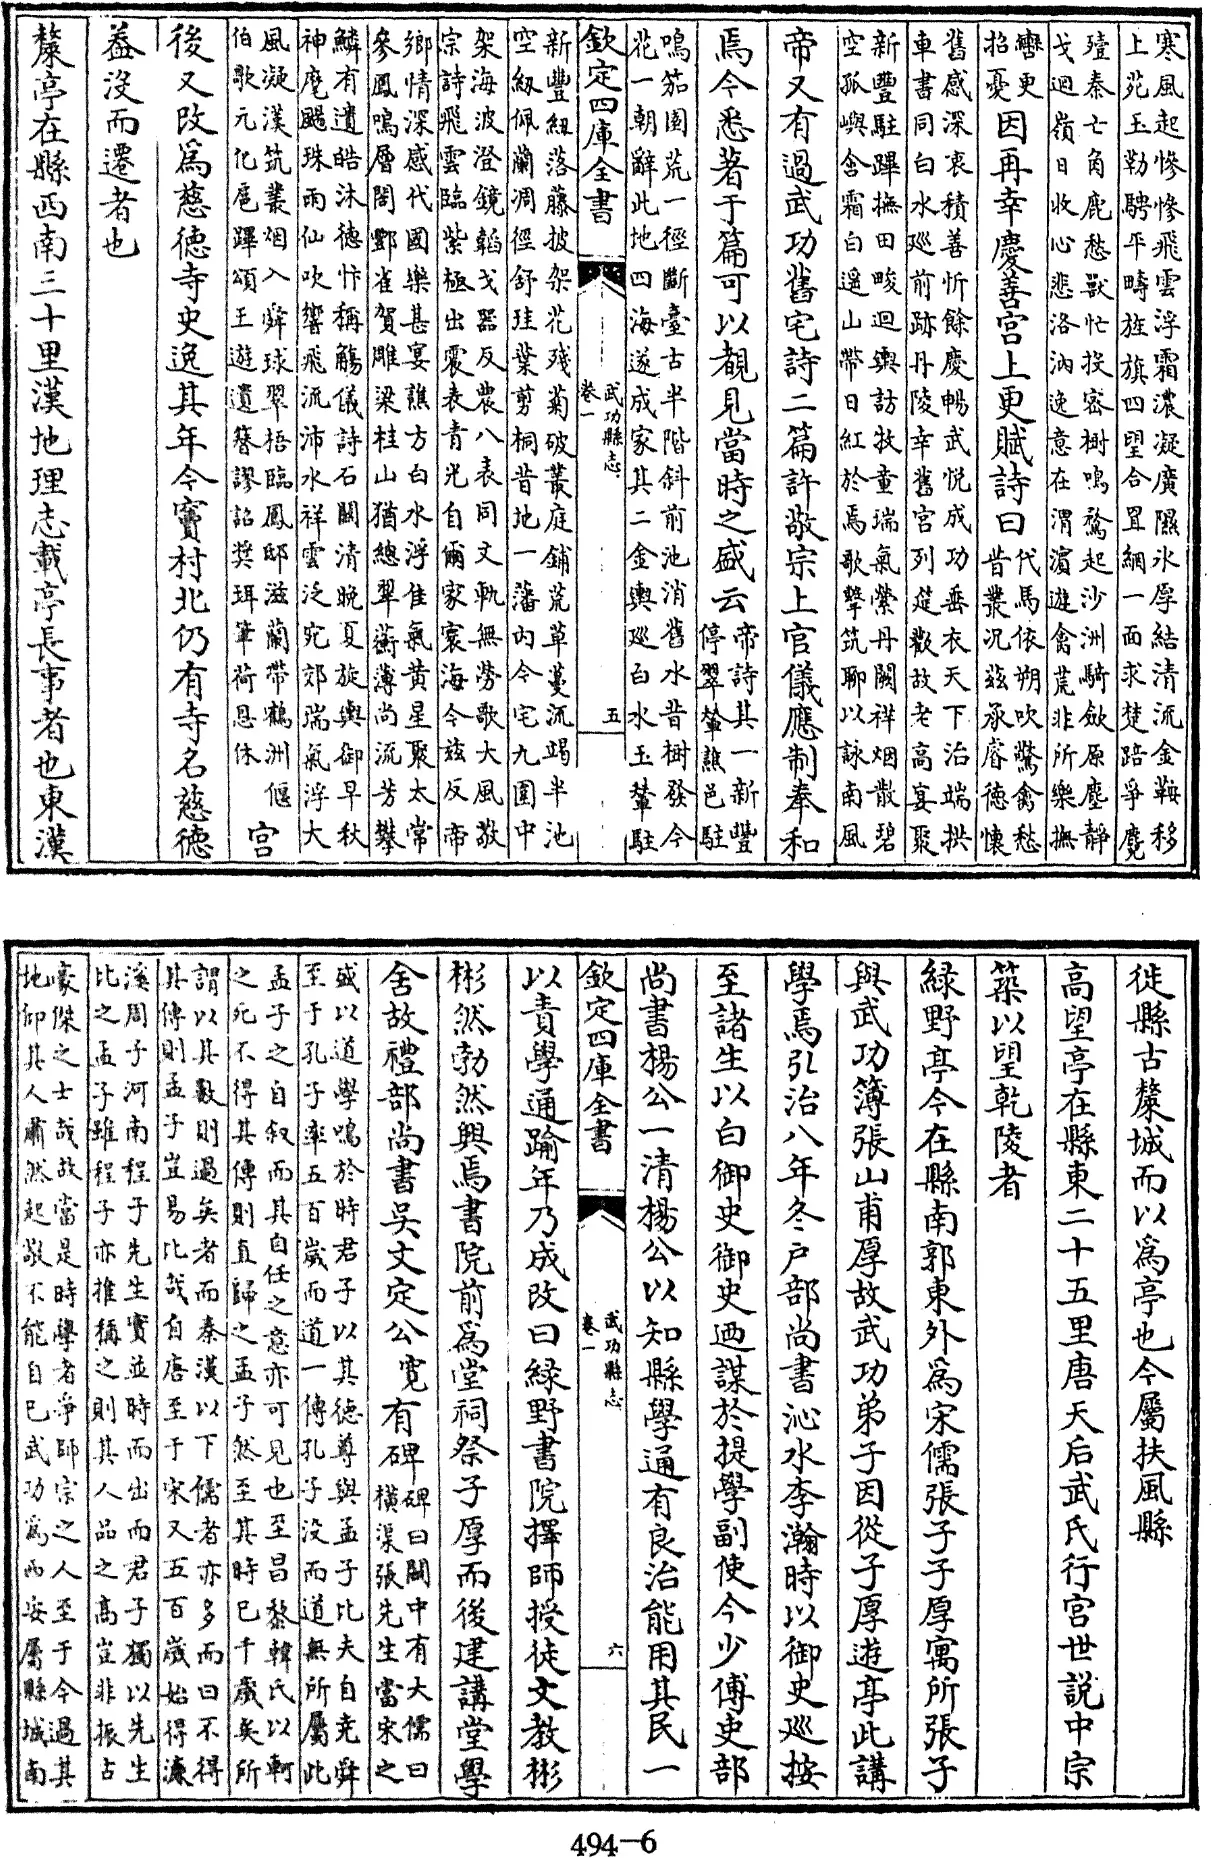 寒風起慘慘飛雲浮霜濃凝廣隰氷厚結清流金鞍移
上苑玉勒騁平疇旌旗四望合罝網一面求楚踣爭麑
殪秦亡角鹿愁獸忙投密樹鳴鶩起沙洲騎歛原塵靜
戈迴嶺日收心悲洛汭逸意在渭濵遊禽荒非所樂撫
轡更
招憂 因再幸慶善宫上更賦詩曰 代馬依朔吹驚禽愁
昔叢况茲承睿徳懷
舊感深衷積善忻餘慶暢武悅成功垂衣天下治端拱
車書同白水廵前跡丹陵幸舊宫列筵歡故老高宴聚
新豐駐蹕撫田畯迴輿訪牧童瑞氣縈丹闕祥烟散碧
空孤嶼含霜白遥山帶日紅於焉歌擊筑聊以詠南風
帝又有過武功舊宅詩二篇許敬宗上官儀應制奉和
焉今悉著于篇可以覩見當時之盛云 帝詩其一新豐
停翠輦譙邑駐
鳴笳園荒一徑斷臺古半階斜前池消舊水昔樹發今
花一朝辭此地四海遂成家其二金輿廵白水玉輦駐
欽定四庫全書
武功縣志
卷一
五
新豐紐落藤披架花殘菊破叢庭鋪荒草蔓流竭半池
空紉佩蘭凋徑舒珪葉剪桐昔地一蕃内今宅九圍中
架海波澄鏡韜戈器反農八表同文軌無勞歌大風敬
宗詩飛雲臨紫極出震表青光自爾家寰海今兹反帝
鄉情深感代國樂甚宴譙方白水浮佳氣黄星聚太常
參鳳鳴層閣酆雀賀雕梁桂山猶總翠蘅薄尚流芳攀
鱗有遺皓沐徳忭稱觴儀詩石關清晚夏旋輿御早秋
神麾颺珠雨仙吹響飛流沛水祥雲泛宛郊瑞氣浮大
風凝漢筑叢烟入舜球翠梧臨鳳邸滋蘭帶鶴洲偃
伯歌元化扈蹕頌王遊遺簮謬詔奬珥筆荷恩休 宫
後又改為慈徳寺史逸其年今竇村北仍有寺名慈徳
葢没而遷者也
斄亭在縣西南三十里漢地理志載亭長事者也東漢
徙縣古斄城而以為亭也今屬扶風縣
高望亭在縣東二十五里唐天后武氏行宫世説中宗
築以望乾陵者
緑野亭今在縣南郭東外為宋儒張子子厚寓所張子
與武功簿張山甫厚故武功弟子因從子厚遊亭此講
學焉弘治八年冬户部尚書沁水李瀚時以御史廵按
至諸生以白御史御史廼謀於提學副使今少傅吏部
尚書楊公一清楊公以知縣學通有良治能用其民一
欽定四庫全書
武功縣志
卷一
六
以責學通踰年乃成改曰緑野書院擇師授徒文教彬
彬然勃然興焉書院前為堂祠祭子厚而後建講堂學
舍故禮部尚書吳文定公寛有碑 碑曰關中有大儒曰
横渠張先生當宋之
盛以道學鳴於時君子以其德尊與孟子比夫自堯舜
至于孔子率五百歲而道一傳孔子没而道無所屬此
孟子之自叙而其自任之意亦可見也至昌黎韓氏以軻
之死不得其傳則直歸之孟子然至其時已千歲矣所
謂以其數則過矣者而秦漢以下儒者亦多而曰不得
其傳則孟子豈易比哉自唐至于宋又五百歲始得濓
溪周子河南程子先生實並時而出而君子獨以先生
比之孟子雖程子亦推稱之則其人品之高豈非振古
豪傑之士哉故當是時學者爭師宗之人至于今過其
地仰其人肅然起敬不能自已武功為西安屬縣城南
494-6